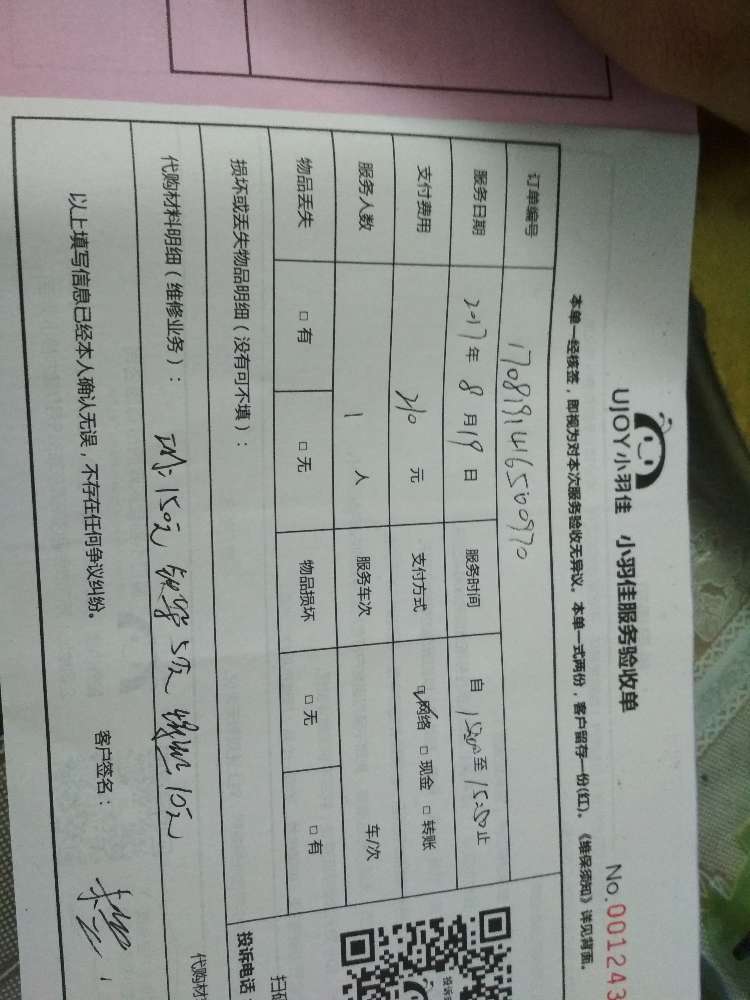 UJOY小羽佳 小羽佳服务验收单 No.001243
本单一经核签，即视为对本次服务验收无异议。本单一式两份，客户留存一份(红)。《维保须知》详见背面。
订单编号 1708191416500970
服务日期 2017年8月19日 服务时间 自15:00至15:50止
支付费用 210元 支付方式 网络 □现金 □转账
服务人数 1人 服务车次 车/次
物品丢失 □有 □无 物品损坏 □无 □有
损坏或丢失物品明细（没有可不填）：
代购材料明细（维修业务）： 150元 50元 10元
以上填写信息已经本人确认无误，不存在任何争议纠纷。 客户签名：
代购材
投诉电话
扫码
投诉